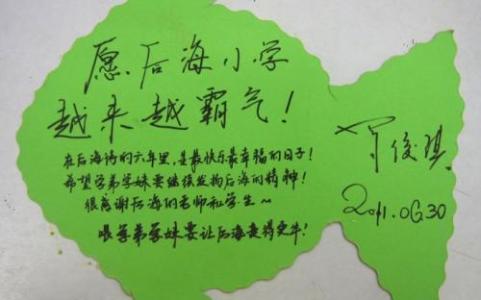 愿后海小学
越来越霸气!
在后海待的六年里,是最快乐最幸福的日子!
希望学弟学妹要继续发扬后海的精神!
很感谢后海的老师和学生~
学弟学妹要让后海变得更牛!
俊琪
2011.06.30